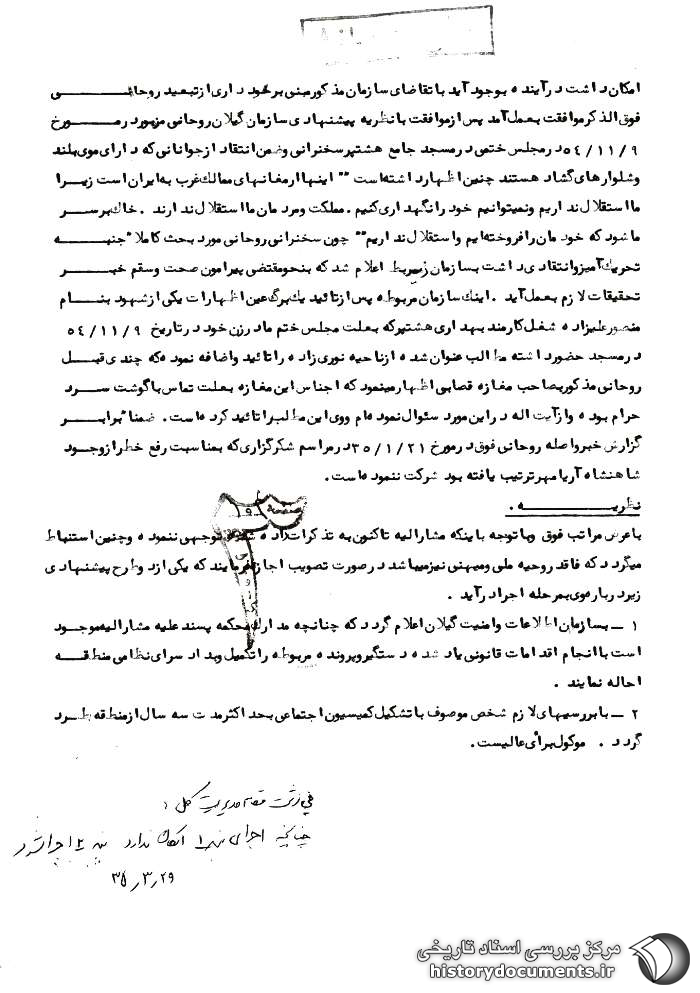 امکان داشت در آینده بوجود آید با تقاضای سازمان مذکور مبنی بر خود داری از تبعید روحانی
فوق الذکر موافقت بعمل آمد پس از موافقت با نظریه پیشنهادی سازمان گیلان روحانی مزبور در مورخ
۵۴/۱۱/۹ در مجلس ختمی در مسجد جامع هشتپر سخنرانی وضمن انتقاد از جوانانی که دارای موی بلند
وشلوارهای گشاد هستند چنین اظهار داشته است "" اینها ارمغانهای ممالک غرب به ایران است زیرا
ما استقلال نداریم ونمیتوانیم خود را نگهداری کنیم . مملکت ومردمان ما استقلال ندارند . خاک بر سر
ما شود که خود مان را فروخته ایم واستقلال نداریم "" چون سخنرانی روحانی مورد بحث کاملا" جنبه
تحریک آمیز وانتقادی داشت بسازمان زیربط اعلام شد که بنحو مقتضی پیرامون صحت وسقم خبر
تحقیقات لازم بعمل آید . اینک سازمان مربوطه پس از تائید یک برگ عین اظهارات یکی از شهود بنام
منصور علیزاده شغل کارمند بهداری هشتپر که بعلت مجلس ختم مادر زن خود در تاریخ ۵۴/۱۱/۹
در مسجد حضور داشته مطالب عنوان شده از ناحیه نوری زاده را تائید واضافه نموده که چندی قبل
روحانی مذکور بصاحب مغازه قصابی اظهار مینمود که اجناس این مغازه بعلت تماس با گوشت سرد
حرام بوده و از آیت اله در این مورد سئوال نموده ام ووی این مطلب را تائید کرده است . ضمنا" برابر
گزارش خبر واصله روحانی فوق در مورخ ۳۵/۱/۲۱ در مراسم شکرگزاری که بمناسبت رفع خطر از وجود
شاهنشاه آریامهر ترتیب یافته بود شرکت ننموده است .
نظریه .
با عرض مراتب فوق وبا توجه باینکه مشارالیه تاکنون به تذکرات داده شده توجهی ننموده وچنین استنباط
میگردد که فاقد روحیه ملی ومیهنی نیز میباشد در صورت تصویب اجازه فرمایند که یکی از دو طرح پیشنهادی
زیر درباره وی بمرحله اجرا درآید .
۱ ــ بسازمان اطلاعات وامنیت گیلان اعلام گردد که چنانچه مدارک محکمه پسند علیه مشارالیه موجود
است با انجام اقدامات قانونی یاد شده دستگیر وپرونده مربوطه را تکمیل وبدادسرای نظامی منطقه
احاله نمایند .
۲ ــ با بررسیهای لازم شخص موصوف با تشکیل کمیسیون اجتماعی بحداکثر مدت سه سال از منطقه طرد
گردد . موکول برأی عالیست .
مقام مدیریت کل :
چنانچه اجرای بند ۱ امکان ندارد بند ۲ اجرا شود
۳۵٫۳٫۲۹
مرکز بررسی اسناد تاریخی
historydocuments.ir